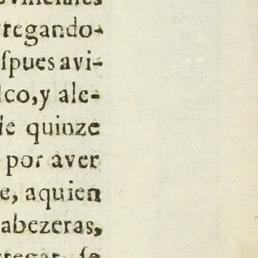 regando-
ſpues avi-
lco, y ale-
de quinze
por aver
e, aquien
abezeras,